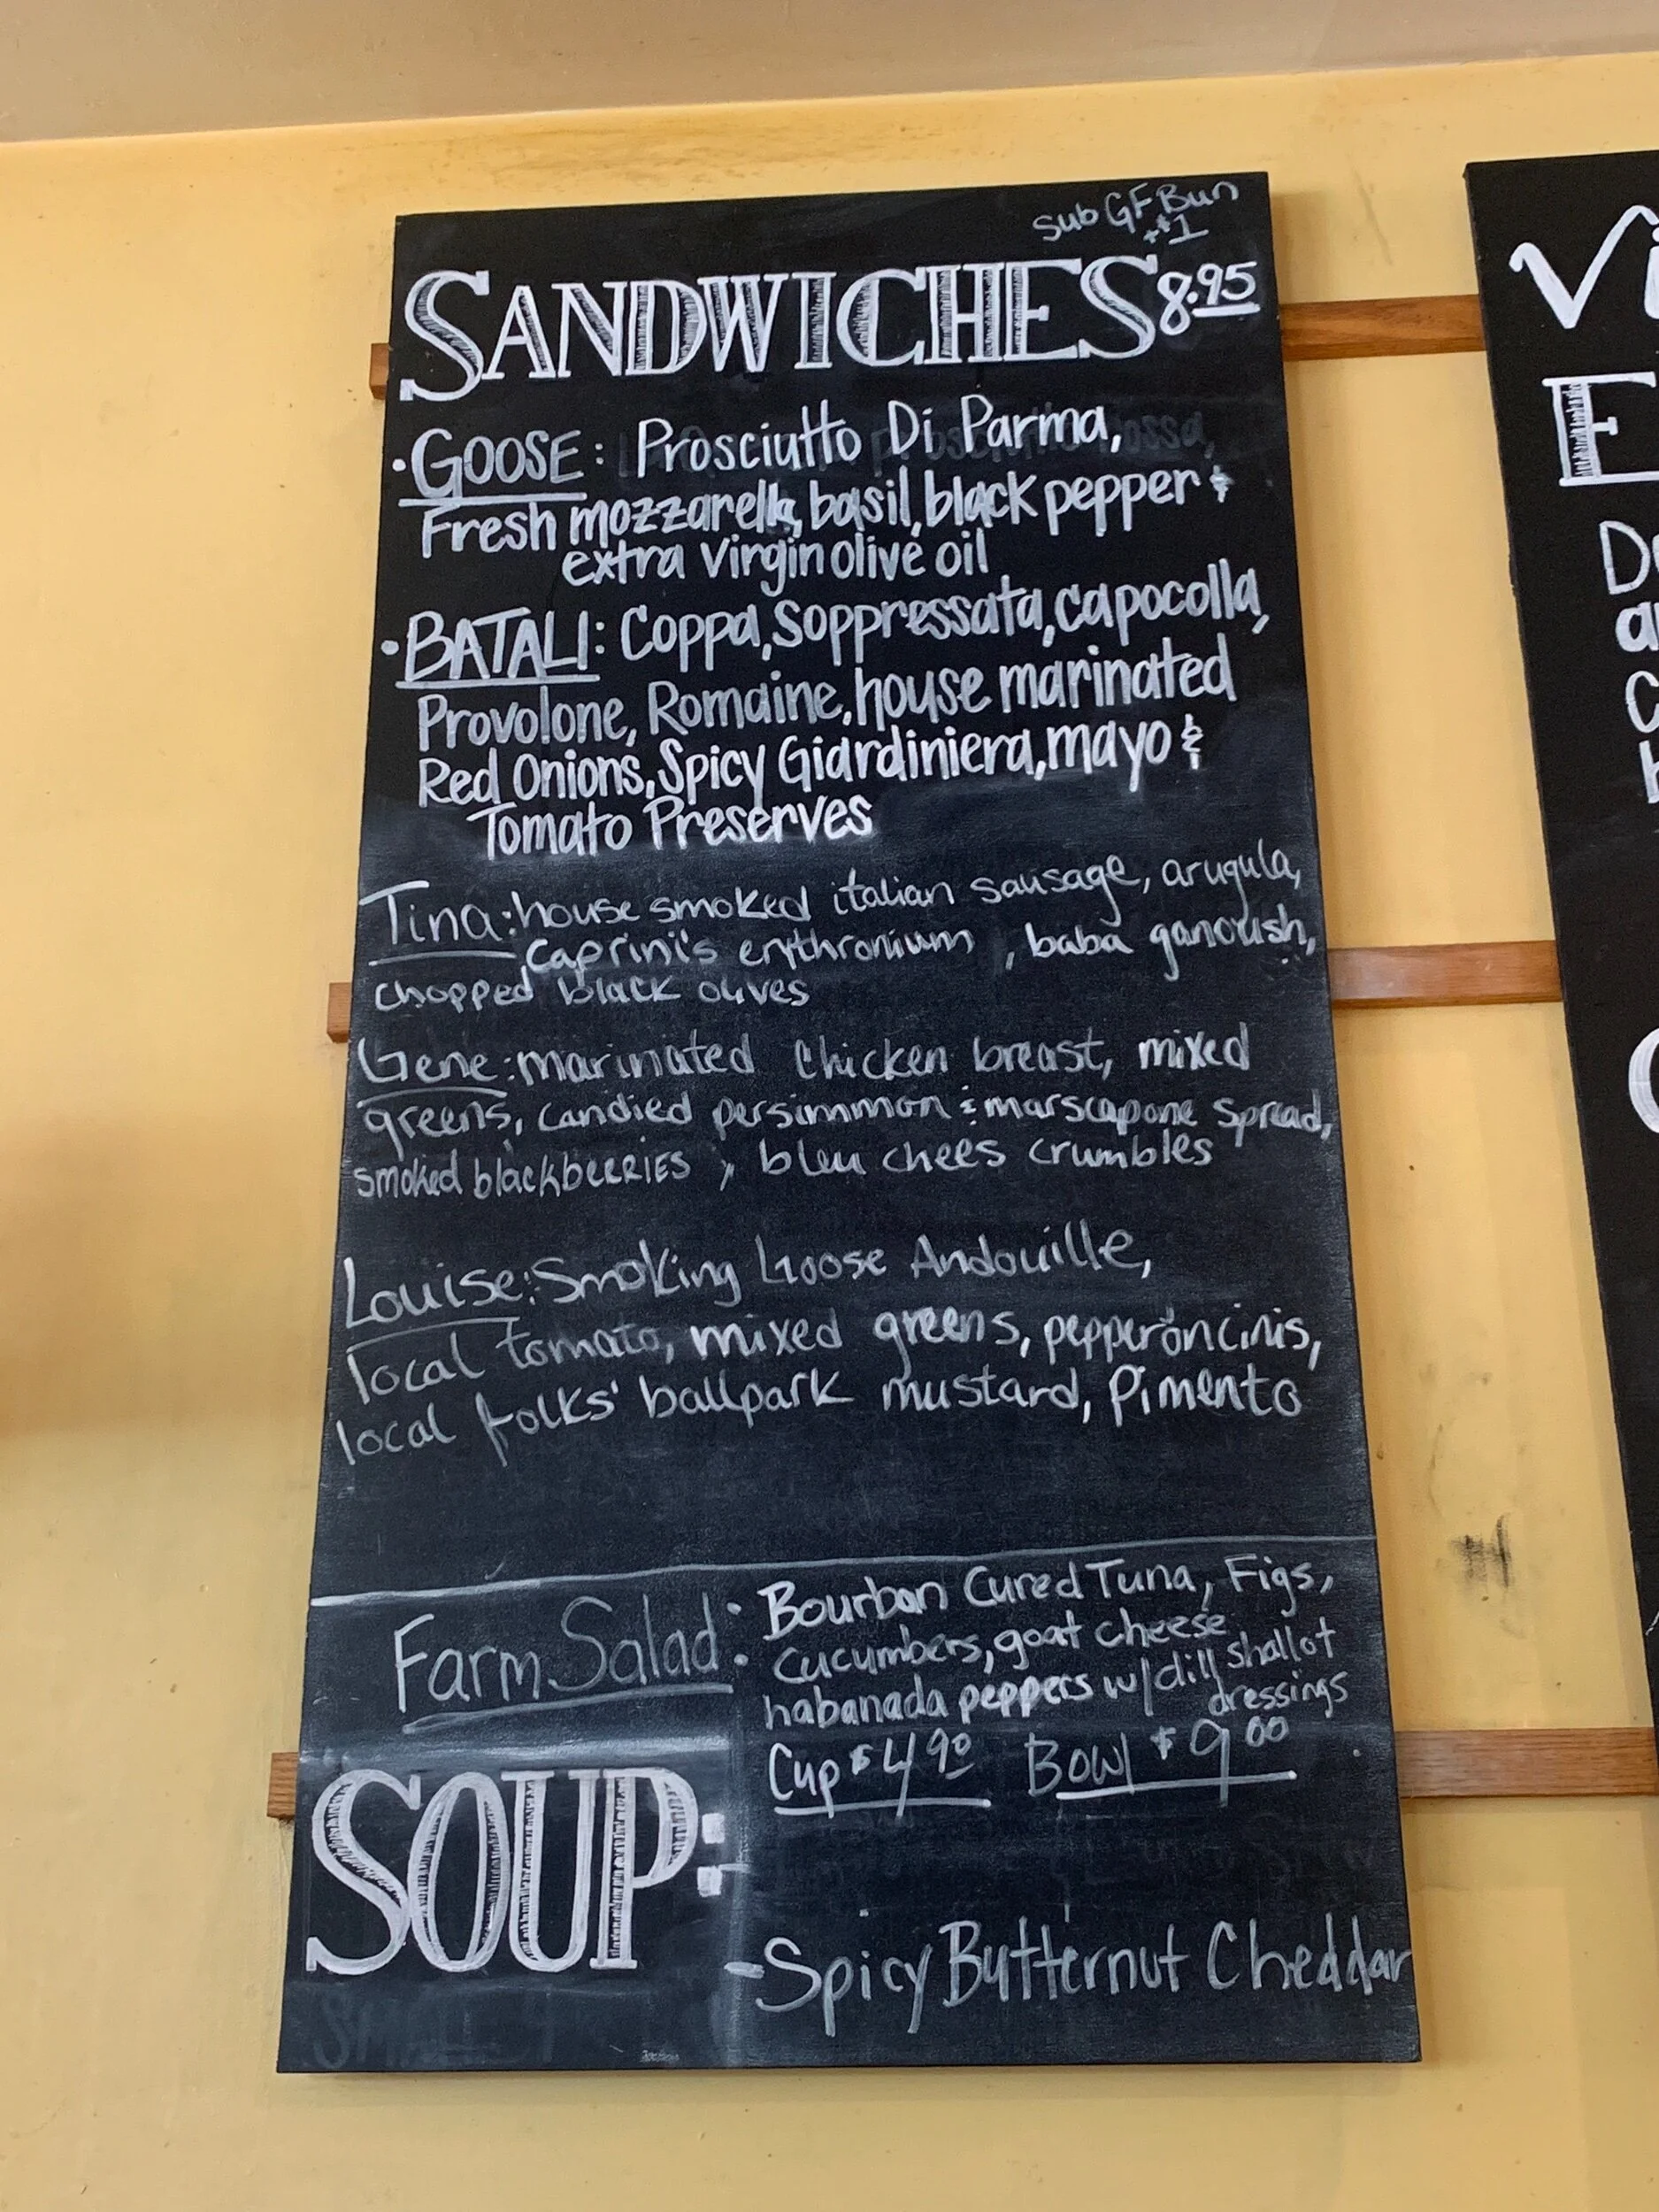 sub GF Bun
+$1
SANDWICHES 8.95
• GOOSE: Prosciutto Di Parma,
Fresh mozzarella, basil, black pepper &
extra virgin olive oil
• BATALI: Coppa, Soppressata, capocolla,
Provolone, Romaine, house marinated
Red Onions, Spicy Giardiniera, mayo &
Tomato Preserves
Tina: house smoked italian sausage, arugula,
Caprini's erythronium, baba ganoush,
chopped black olives
Gene: marinated chicken breast, mixed
greens, candied persimmon & marscapone spread,
smoked blackberries, bleu chees crumbles
Louise: Smoking Goose Andouille,
local tomato, mixed greens, pepperoncinis,
local folks' ballpark mustard, Pimento
Farm Salad: Bourbon Cured Tuna, Figs,
cucumbers, goat cheese
habanada peppers w/dill shallot
dressings
Cup $4.90 Bowl $9.00
SOUP:
- Spicy Butternut Cheddar
Vi
E